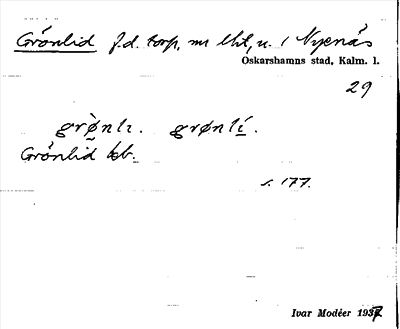 Grönlid f.d. torp, nu lht, u. / Nyenäs
Oskarshamns stad, Kalm. l.
29
grø̀nlɩ. grønlí.
Grönlid bb.
s. 177.
Ivar Modéer 1937